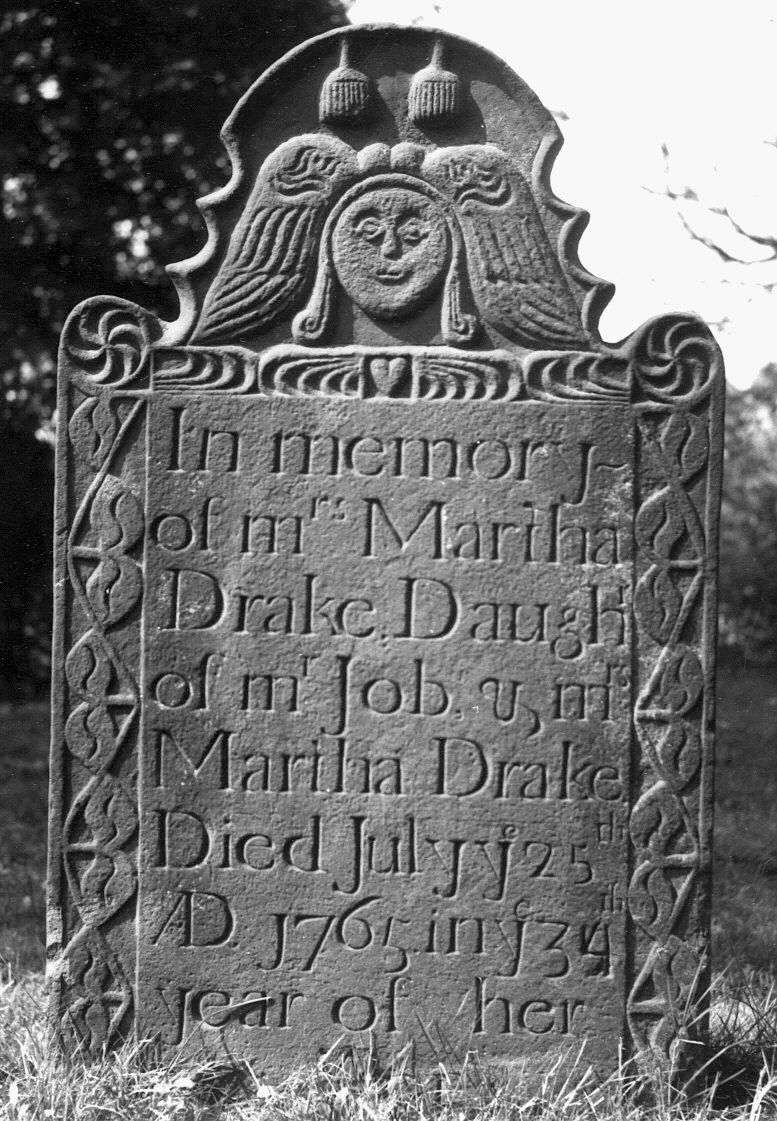 In memory
of mrs Martha
Drake Daughr
of mr Job, & mrs
Martha Drake
Died July ye 25th
AD. 1765 in ye 34th
year of her